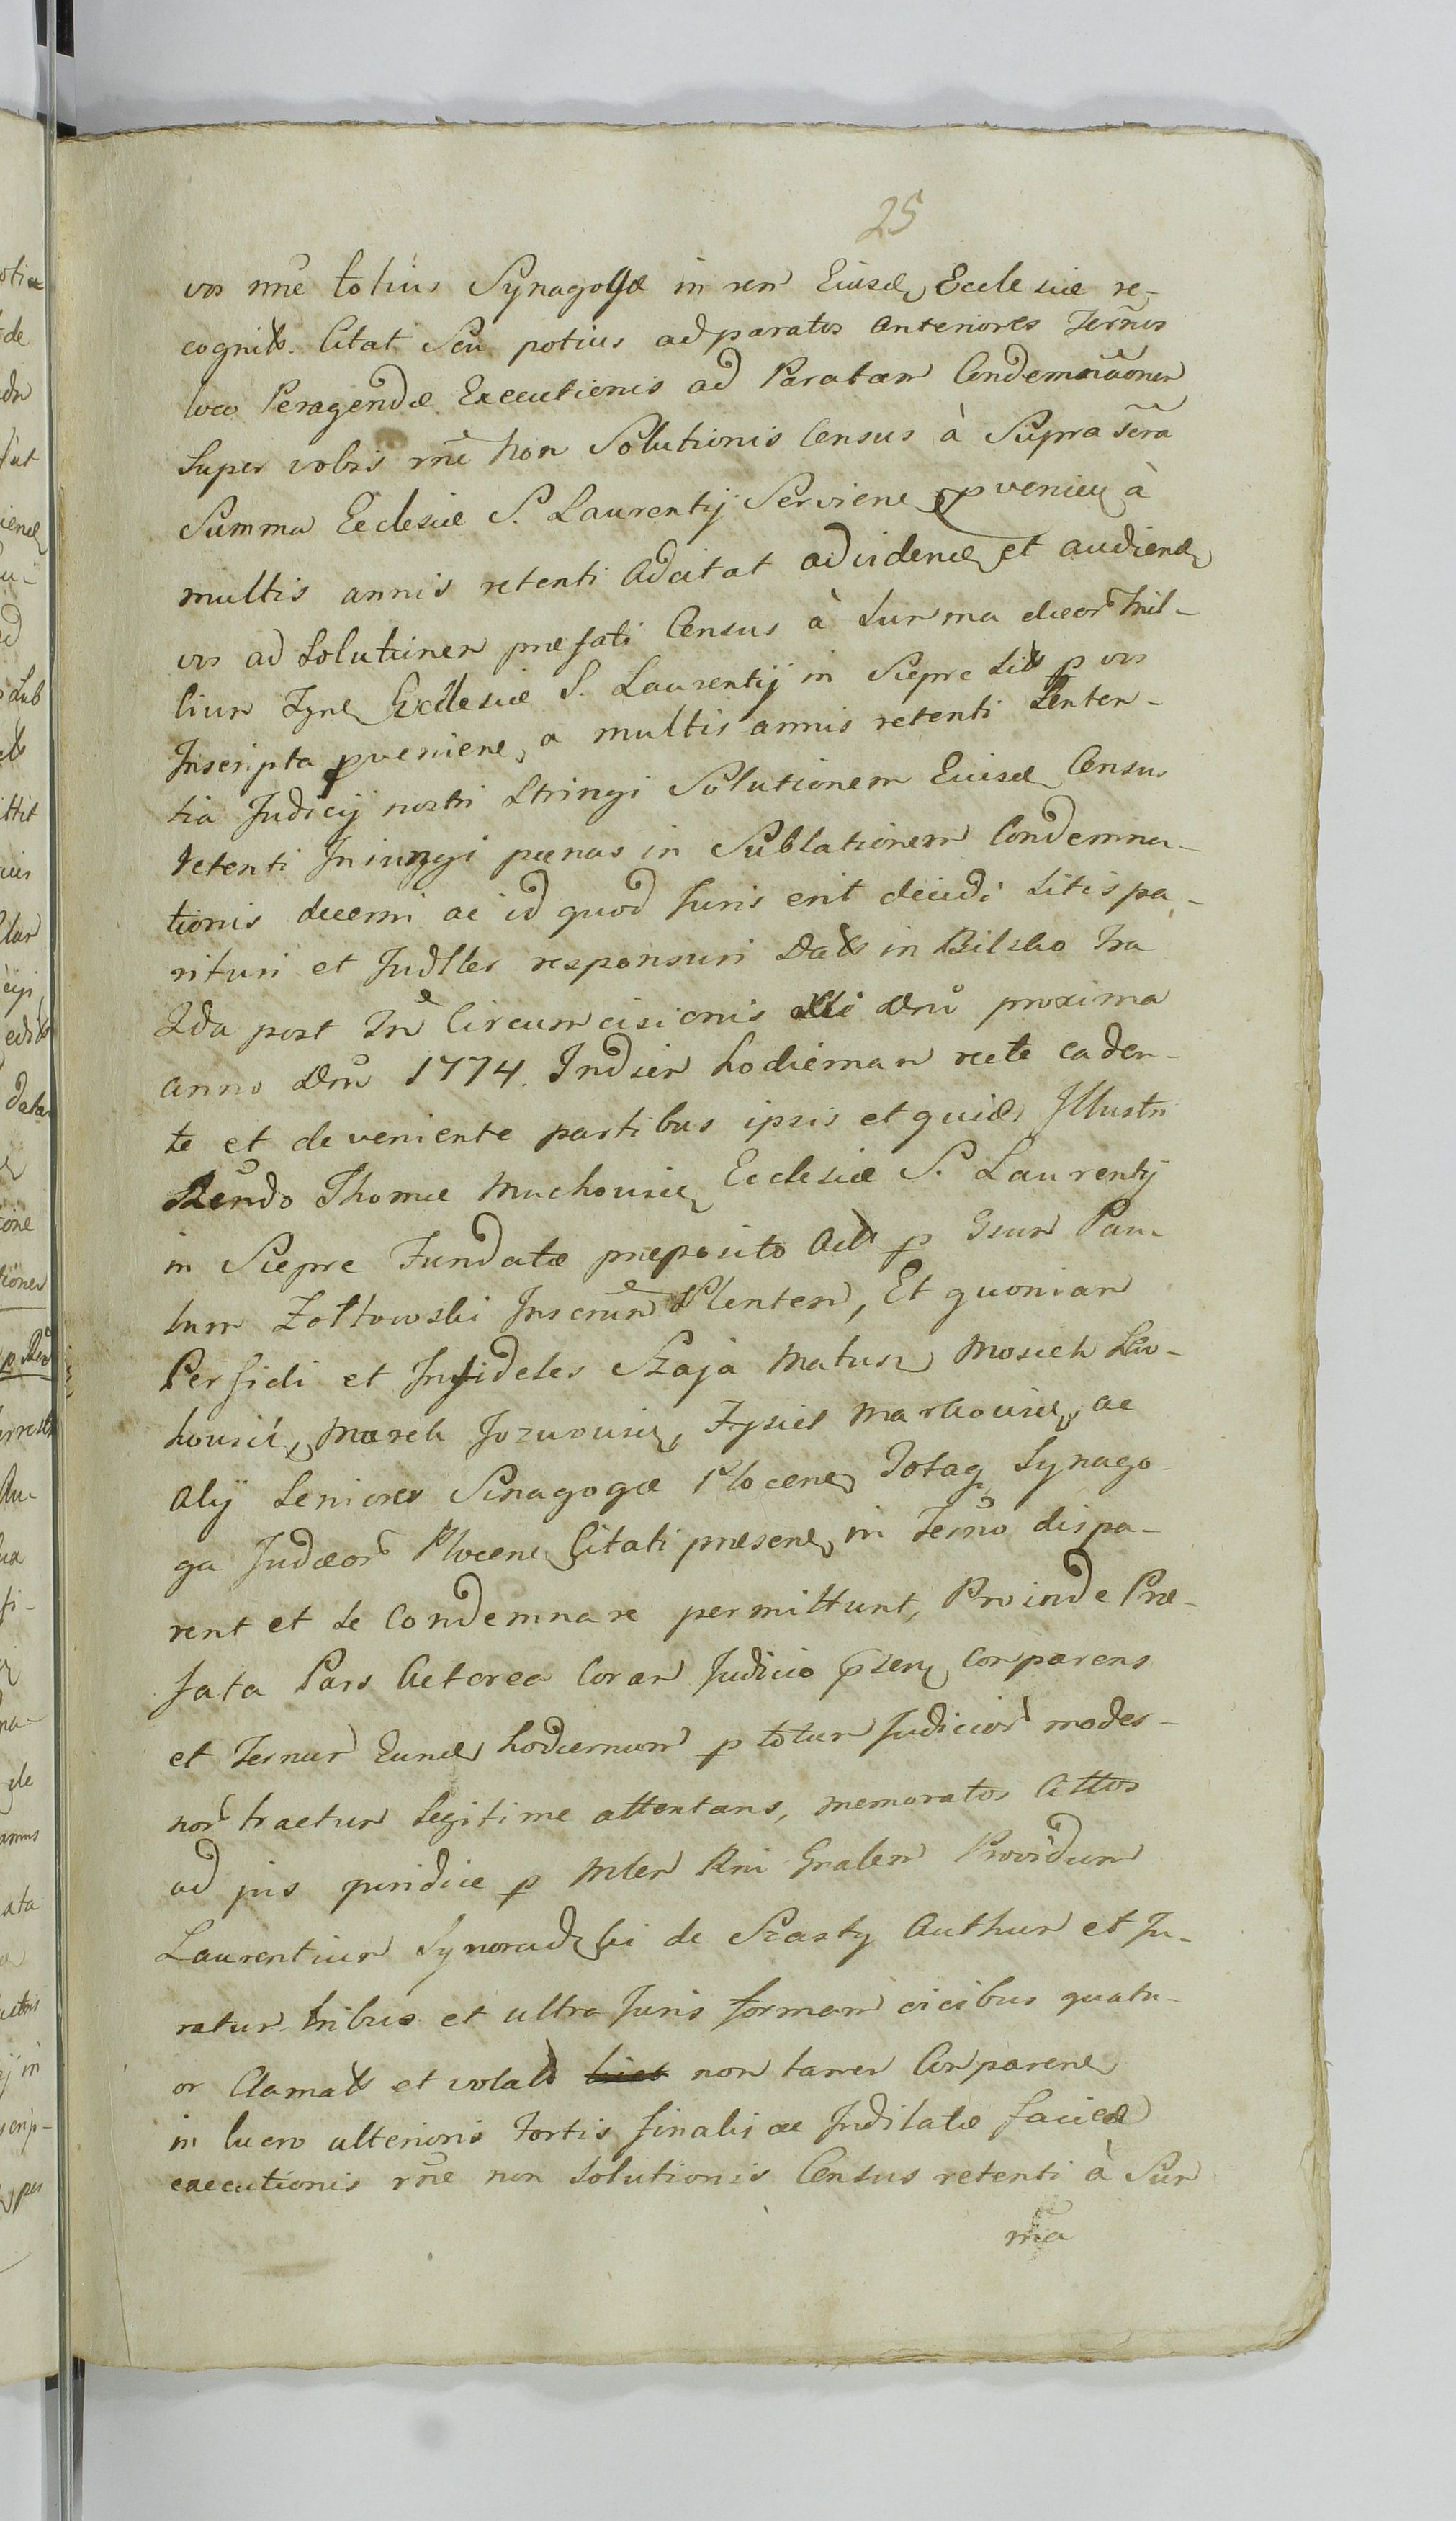 25
vos rñe totius Synagogæ in rem Eiusd Ecclesiæ re-
cognit. Citat Seu potius adparatos anteriores Termos
loco Peragendæ Executionis ad Paratam Condemnãonem
Super vobis rñe non Solutionis Census à Suprascra
Summa Ecclesiæ S. Laurentij Serviene pvenien à
multis annis retenti Adcitat ad vidend et audiend
vos ad Solutionem præfati Census à Summa duor Mil-
lium Ecclesiæ S. Laurentij in Siepre Sit p vos
Inscripta pveniene, a multis annis retenti Senten-
tia Judicij nostri Stringi Solutionem Eiusd Census
retenti Iniungi pænas in Sublationem Condemna-
tionis decerni ac id quod Juris erit decidi Litis pa-
rituri et Judller responsuri Dat in Bilsko Fra
2da post Fm Circumcisionis Dñi proxima
anno Dñi 1774. Indiem hodiernam recte caden-
te et deveniente partibus ipsis et quid Illustri
Rendo Thomæ Muchowicz Ecclesiæ S. Laurentij
in Siepre Fundatæ præposito Act p Gsum Pau-
lum Zołtowski Inscrum Plenten, Et quoniam
Perfidi et Infideles Szaja Matusz Mosiek Lew-
kowicz, Marek Jozwowicz, Fysiel Markowicz, ac
Alij Seniores Sinagogæ Plocene Totaq Synago-
ga Judæor Plocene Citati præsene in Termo dispa-
rent et Se Condemnare permittunt, Proinde Præ-
fata Pars Actorea Coram Judicio psen Comparens
et Termum Eund hodiernum p totum Judicior moder-
nor tractum Legitime attentans, memoratos Cittos
ad jus juridice p Mlem Rni Gnalem Providum
Laurentium Synoradzki de Szasty Authum et Ju-
ratum tribus et ultra Juris formam vicibus quatu-
or Clamat et volat non tamen Comparene
in lucro ulterioris Fortis finalis ac Indilatæ faciedæ
executionis rñe non Solutionis Census retenti à Sum
ma